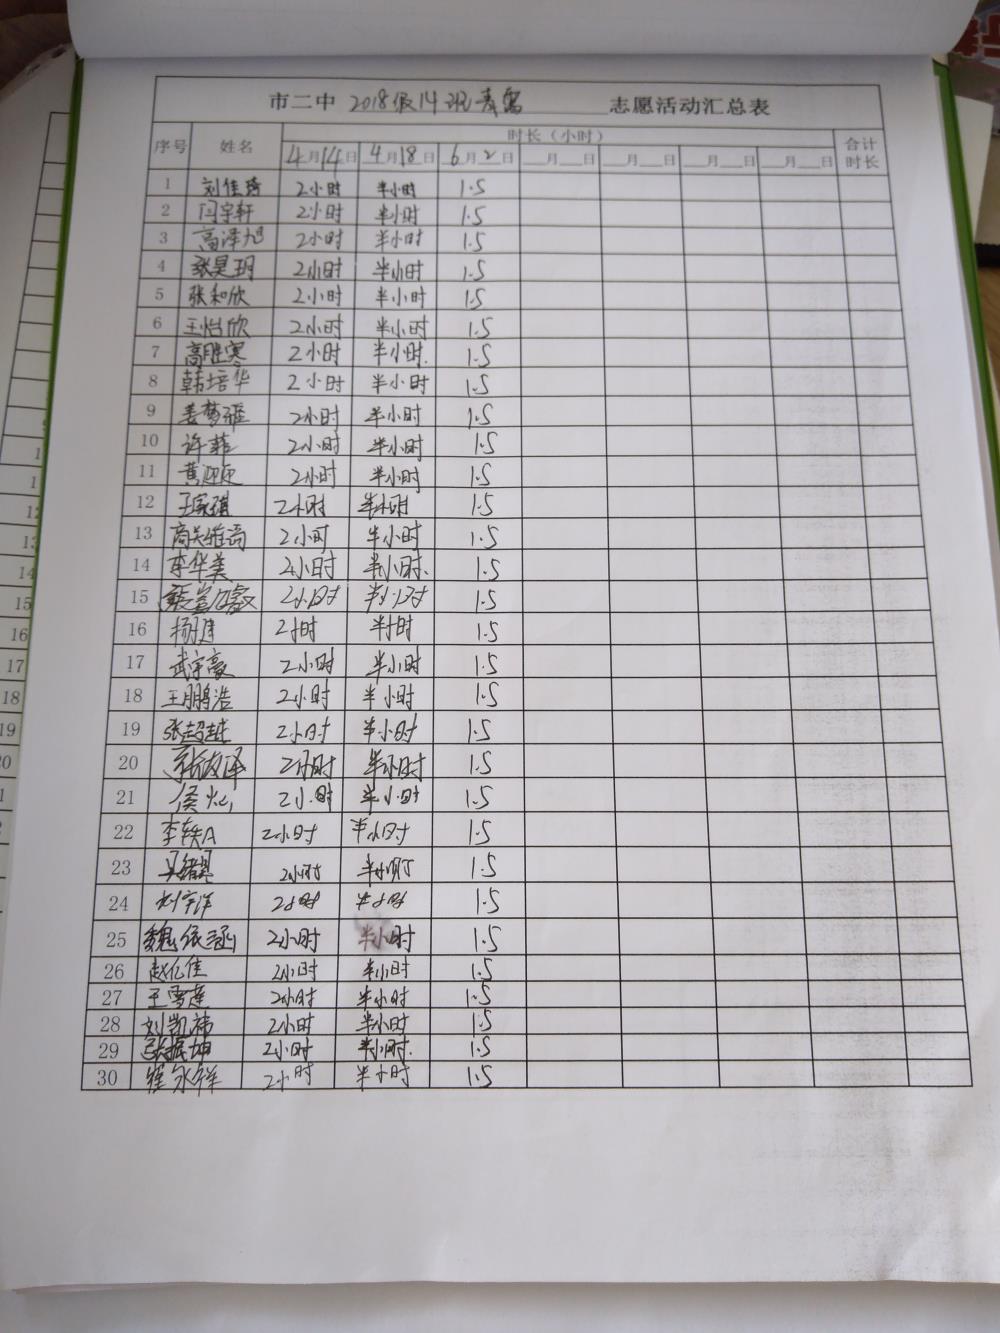 市二中 2018级14班青鸾 志愿活动汇总表
序号 姓名 时长（小时） 合计时长
4月14日 4月18日 6月2日 __月__日 __月__日 __月__日 __月__日
1 刘佳琦 2小时 半小时 1.5
2 闫宇轩 2小时 半小时 1.5
3 高泽旭 2小时 半小时 1.5
4 张昊玥 2小时 半小时 1.5
5 张和欣 2小时 半小时 1.5
6 王怡欣 2小时 半小时 1.5
7 高胜寒 2小时 半小时. 1.5
8 韩培华 2小时 半小时 1.5
9 姜梦雅 2小时 半小时 1.5
10 许菲 2小时 半小时 1.5
11 黄迎 2小时 半小时 1.5
12 王家琪 2小时 半小时 1.5
13 高关维高 2小时 半小时 1.5
14 李华美 2小时 半小时. 1.5
15 2小时 半小时 1.5
16 杨 2小时 半小时 1.5
17 武宇豪 2小时 半小时 1.5
18 王鹏浩 2小时 半小时 1.5
19 张超越 2小时 半小时 1.5
20 2小时 半小时 1.5
21 侯灿 2小时 半小时 1.5
22 李 2小时 半小时 1.5
23 2小时 半小时 1.5
24 刘宇洋 2小时 半小时 1.5
25 魏依涵 2小时 半小时 1.5
26 赵亿佳 2小时 半小时 1.5
27 王雪莲 2小时 半小时 1.5
28 刘凯祎 2小时 半小时 1.5
29 张振坤 2小时 半小时. 1.5
30 崔永祥 2小时 半小时 1.5